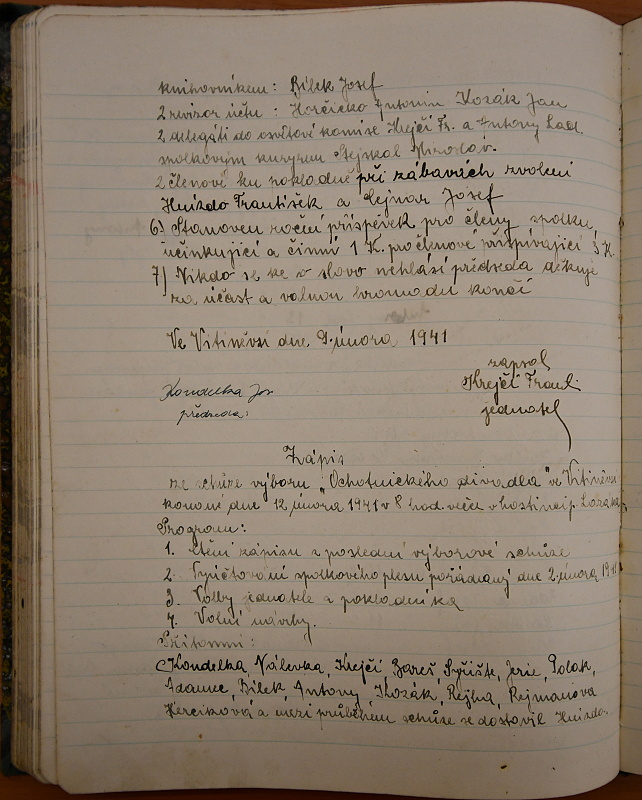 knihovníkem: Bílek Josef
2 revizor účtu: Horčičko Antonín Kozák Jan
2 delegáti do osvětové komise Krejčí Fr. a Antony Lad.
spolkovým kurýrem Stejskal Miroslav.
2 členové ku pokladně při zábavách zvoleni
Hnízdo František a Lejnar Josef
6) Stanoven roční příspěvek pro členy spolku,
účinkující a činní 1 K. pro členové přispívající 5 K.
7) Nikdo se ke slovo nehlásí předseda děkuje
za účast a valnou hromadu končí
Ve Vitiněvsi dne 9. února 1941
zapsal
Krejčí Frant.
jednatel
Kondelka Jos
předseda:
Zápis
ze schůze výboru „Ochotnického divadla" ve Vitiněvsi
konané dne 12 února 1941 v 8 hod. večer v hostinci p.
Program:
1. Čtení zápisu z poslední výborové schůze
2. Vyúčtování spolkového plesu pořádaný dne 2. února 1941
3. Volby jednatele a pokladníka
4. Volné návrhy.
Přítomni:
Kondelka Nálevka, Krejčí, Bareš Syřiště, Jerie, Polak,
Adamec, Bílek, Antony, Kozák, Rejha, Rejmanová
Herciková a mezi průběhem schůze se dostavil Hnízdo.